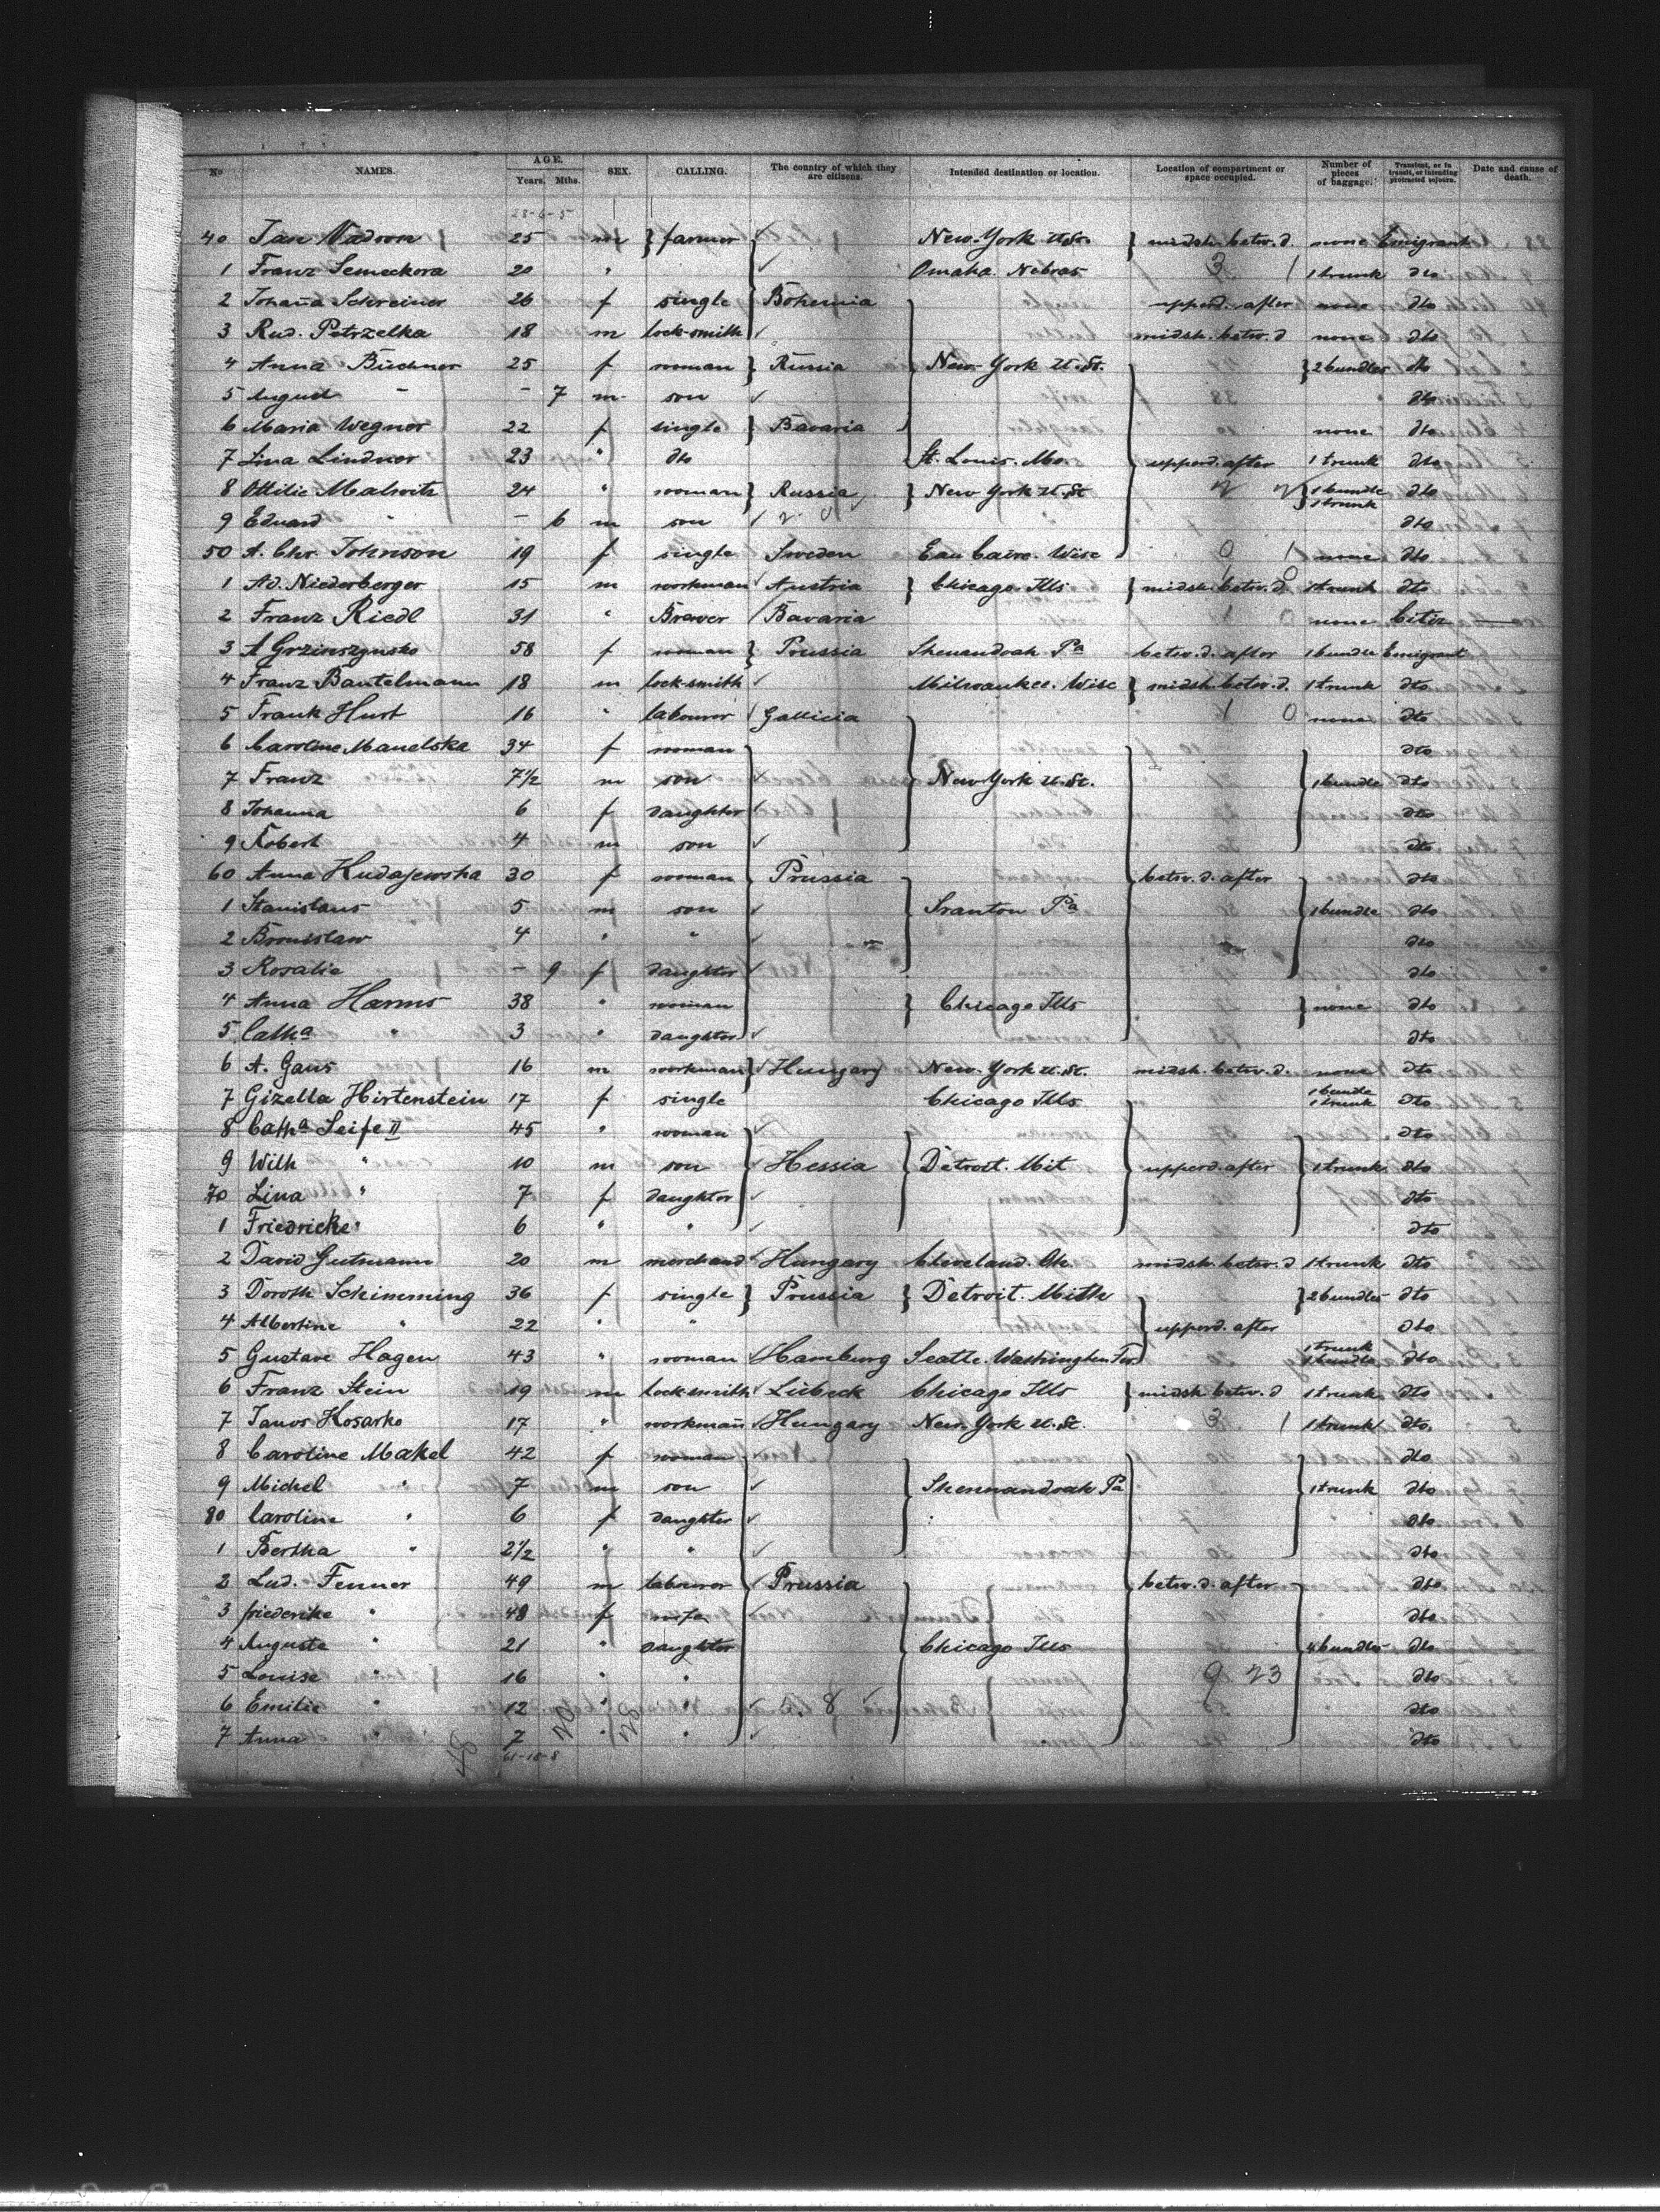 No NAMES. AGE. Years. Mths. SEX. CALLING. The country of which they are citizens. Intended destination or location. Location of compartment or space occupied. Number of pieces of baggage. Transient, or in transit, or intending protracted sojourn. Date and cause of death.
40 Jan 25 m } farmer New-York U.St. } midsh. betw. d. none Emigrant
1 Franz Semeckora 20 " Omaha Nebras 3 1 1 trunk dto
2 Johaña Schreiner 26 f single Bohemia upperd. after none dto
3 Rud. Petrzelka 18 m lock-smith midsh. betw. d none dto
4 Anna Büchner 25 f woman } Russia New-York U.St. } 2 bundles dto
5 August " - 7 m son dto
6 Maria Wegner 22 f single } Bavaria none dto
7 Lina Lindner 23 " dto St. Louis. Mo. upperd. after 1 trunk dto
8 Ottilie Malwitz 24 " woman } Russia } New York U.St } 1 bundle 1 trunk dto
9 Eduard " - 6 m son dto
50 A. Chr. Johnson 19 f single Sweden Eau Caire. Wisc 0 1 none dto
1 Ad. Niederberger 15 m workman Austria } Chicago Ills } midsh. betw. d. 1 trunk dto
2 Franz Riedl 31 " Brewer Bavaria none Citiz
3 A Grzinszynsko 58 f woman } Prussia Shenandoah Pa betw. d. after 1 bundle Emigrant
4 Franz Bantelmann 18 m lock-smith Milwaukee. Wisc } midsh. betw. d. 1 trunk dto
5 Frank Hurt 16 " labourer Gallicia 1 0 none dto
6 Caroline Manelska 34 f woman dto
7 Franz 7½ m son New-York U.St. 1 bundle dto
8 Johanna 6 f daughter dto
9 Robert 4 m son dto
60 Anna Hudajewska 30 f woman Prussia betw. d. after dto
1 Stanislaus 5 m son Sranton Pa 1 bundle dto
2 Bronislaw 4 " " dto
3 Rosalie - 9 f daughter dto
4 Anna Harms 38 " woman } Chicago Ills } none dto
5 Catha " 3 " daughter dto
6 A. Gaus 16 m workman } Hungary New-York U.St. midsh. betw. d. none dto
7 Gizella Hirtenstein 17 f single Chicago Ills 1 bundle 1 trunk dto
8 Catha Seife II 45 " woman dto
9 Wilh " 10 m son Hessia Detroit. Mit upperd. after 1 trunk dto
70 Lina " 7 f daughter dto
1 Friedricke " 6 " " dto
2 David Gutmann 20 m merchand Hungary Cleveland. Oh. midsh. betw. d 1 trunk dto
3 Doroth Schimming 36 f single } Prussia } Detroit. Mith } 2 bundles dto
4 Albertine " 22 " " upperd. after dto
5 Gustave Hagen 43 " woman Hamburg Seatle. Washington Ter 1 trunk 1 bundle dto
6 Franz Stein 19 m lock-smith Lübeck Chicago Ills } midsh. betw. d 1 trunk dto
7 Janos Kosarko 17 " workmañ Hungary New-York U.St. 3 1 1 trunk dto.
8 Caroline Makel 42 f woman dto
9 Michel " 7 m son Shennandoah Pa 1 trunk dto
80 Caroline " 6 f daughter dto
1 Bertha " 2½ " " dto
2 Lud. Fenner 49 m labourer Prussia betw. d. after dto
3 friederike " 48 f wife dto
4 Auguste " 21 " daughter Chicago Ills 4 bundles dto
5 Louise " 16 " " 9. 23 dto
6 Emilie " 12 " " 8 dto
7 Anna " 7 " " dto
61-10-8